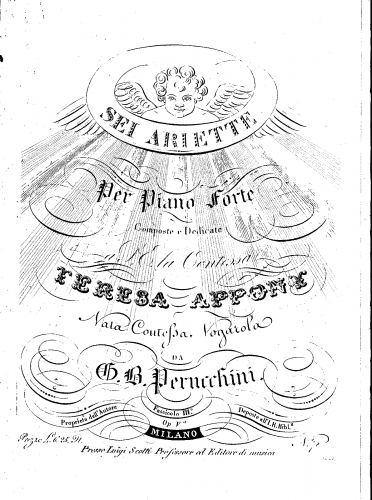 SEI ARIETTE
Per Piano Forte
Composte e Dedicate
a S. E. la Contessa
TERESA APPONY
Nata Contessa Nogarola
DA
G. B. Perucchini.
Proprietà dell'Autore
Fascicolo III.
Deposto all'I. R. Bibl.ª
Op. V.ª
MILANO
Presso Luigi Scotti Professore ed Editore di musica